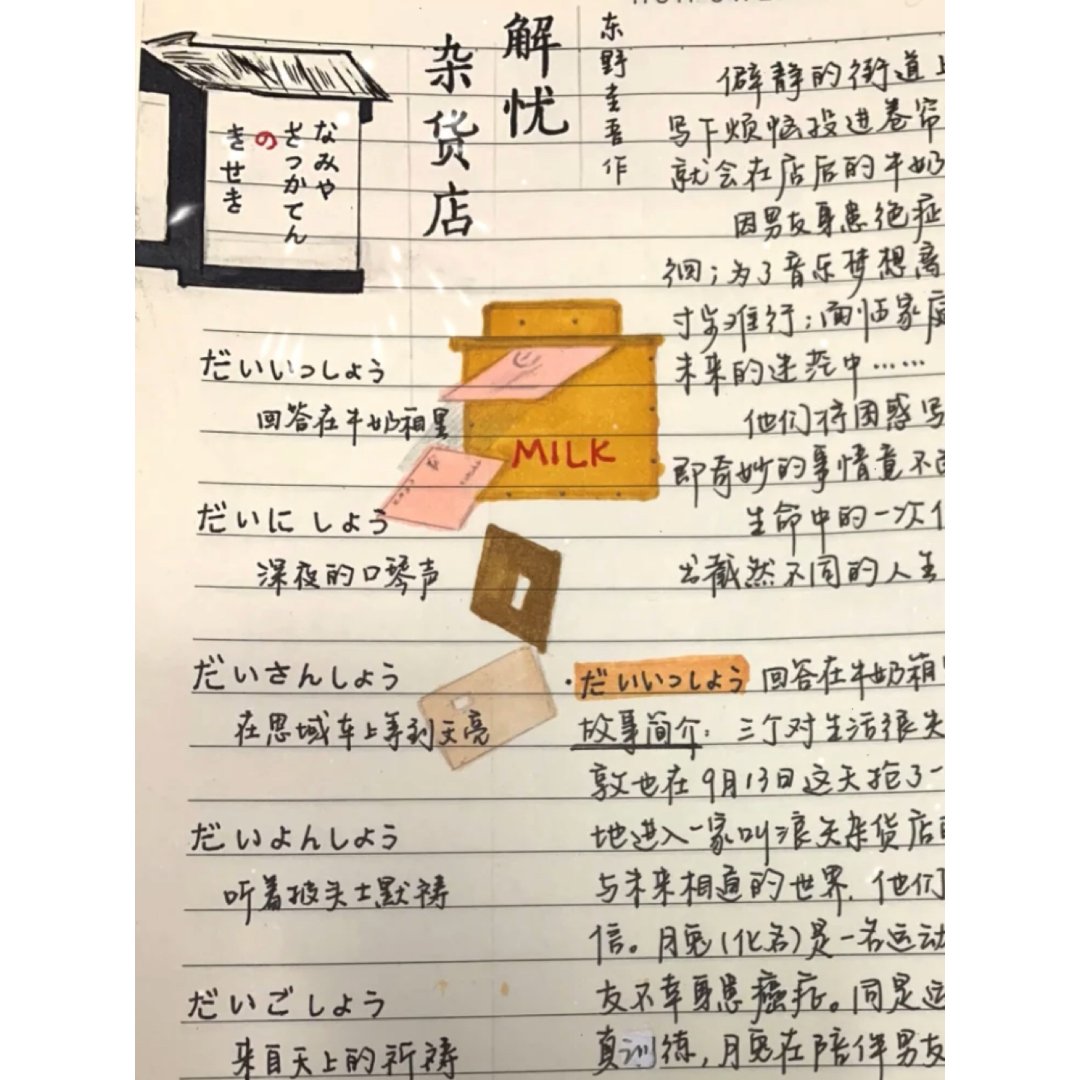 解忧
杂货店
东野圭吾作
なみや
ざっかてん
の
きせき
だいいっしょう
回答在牛奶箱里
だいにしょう
深夜的口琴声
だいさんしょう
在思域车上等到天亮
だいよんしょう
听着披头士默祷
だいごしょう
来自天上的祈祷
MILK
僻静的街道上
写下烦恼投进卷帘
就会在店后的牛奶
因男友身患绝症
徊；为了音乐梦想离
寸步难行；面临家庭
未来的迷茫中……
他们将困惑写
即奇妙的事情竟不
生命中的一次
出截然不同的人生
·だいいっしょう 回答在牛奶箱
故事简介：三个对生活很失
敦也在9月13日这天抢了一
地进入一家叫浪矢杂货店
与未来相通的世界.他们
信。月兔(化名)是一名运动
友不幸身患癌症。同是运
真训练，月兔在陪伴男友